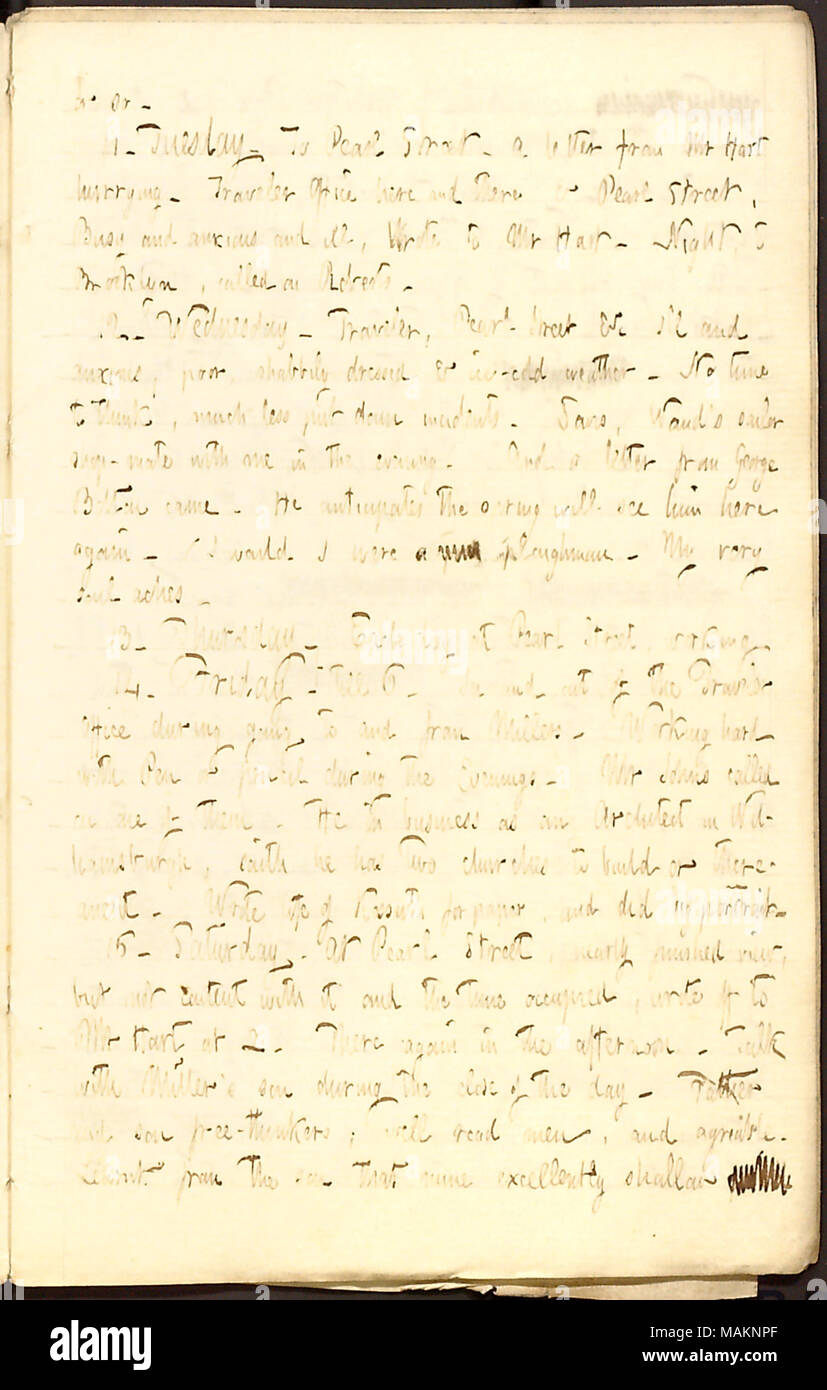 or.
11. Tuesday. To Pearl Street. a letter from Mr Hart
hurrying. Traveler Office here and there & Pearl Street,
Busy and anxious and ill, Wrote to Mr Hart. Night to
Brooklyn, called on Roberts.
12. Wednesday. Traveler, Pearl Street &c ill and
anxious, poor, shabbily dressed & ice-cold weather. No time
to think, much less put down incidents. Waud's sailor
ship-mate with me in the evening. And a letter from George
Bolton came. He anticipates the spring will see him here
again. I would I were a ploughman. My very
soul aches.
13. Thursday. Early day at Pearl Street, working
14. Friday till 5. In and out of the Traveler
Office during going to and from Millers. Working hard
with Pen & pencil during the Evenings. Mr Johns called
on one of them. He in business as an Architect in Wil-
liamsburgh, saith he has two churches to build or there-
anent. Wrote life of Kossuth for paper, and did up portrait.
15. Saturday. At Pearl Street, nearly finished view,
but not content with it and the time occupied, wrote to
Mr Hart at 2. There again in the afternoon. Talk
with Miller's son during the close of the day. Father
and son free-thinkers, well read men, and agreable.
Learnt from the son that mine excellently shallow
alamy
Image ID: MAKNPF
www.alamy.com